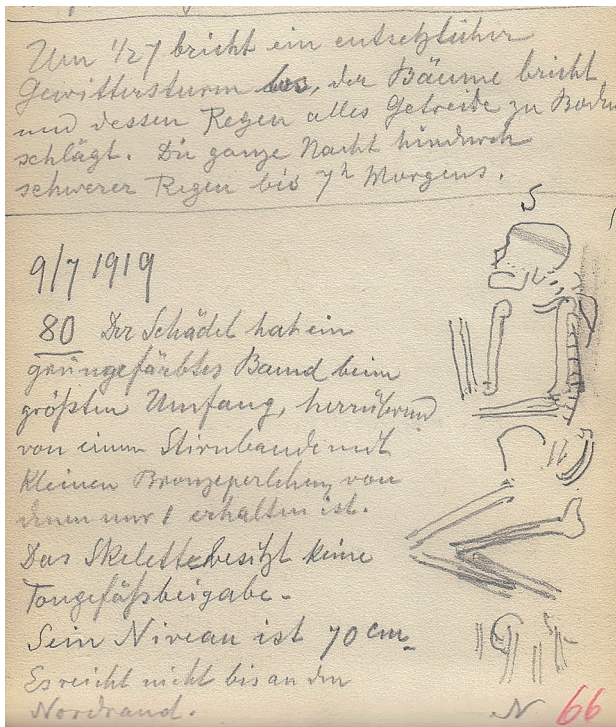 Um 1/2 7 bricht ein entsetzlicher
Gewittersturm los, der Bäume bricht
und dessen Regen alles Getreide zu Boden
schlägt. Die ganze Nacht hindurch
schwerer Regen bis 7h Morgens.
S
9/7 1919
80 Der Schädel hat ein
grüngefärbtes Band beim
größten Umfang, herrührend
von einem Stirnbande mit
kleinen Bronzeperlchen, von
denen nur 1 erhalten ist.
Das Skelett besitzt keine
Tongefäßbeigabe.
Sein Niveau ist 70 cm.
Es reicht nicht bis an den
Nordrand.
N 66